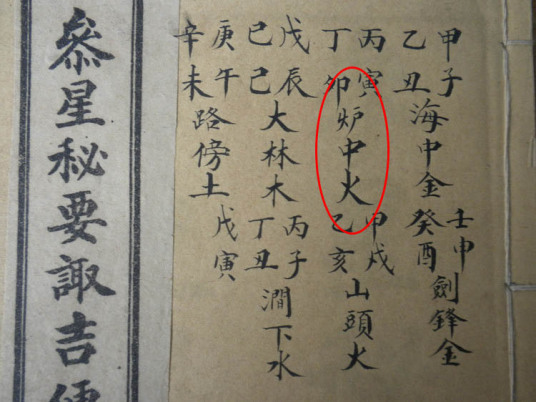 甲子
乙丑
海中金
壬申
癸酉
劍鋒金
丙寅
丁卯
炉中火
甲戌
乙亥
山頭火
戊辰
己巳
大林木
丙子
丁丑
澗下水
庚午
辛未
路傍土
戊寅
叅星秘要諏吉便